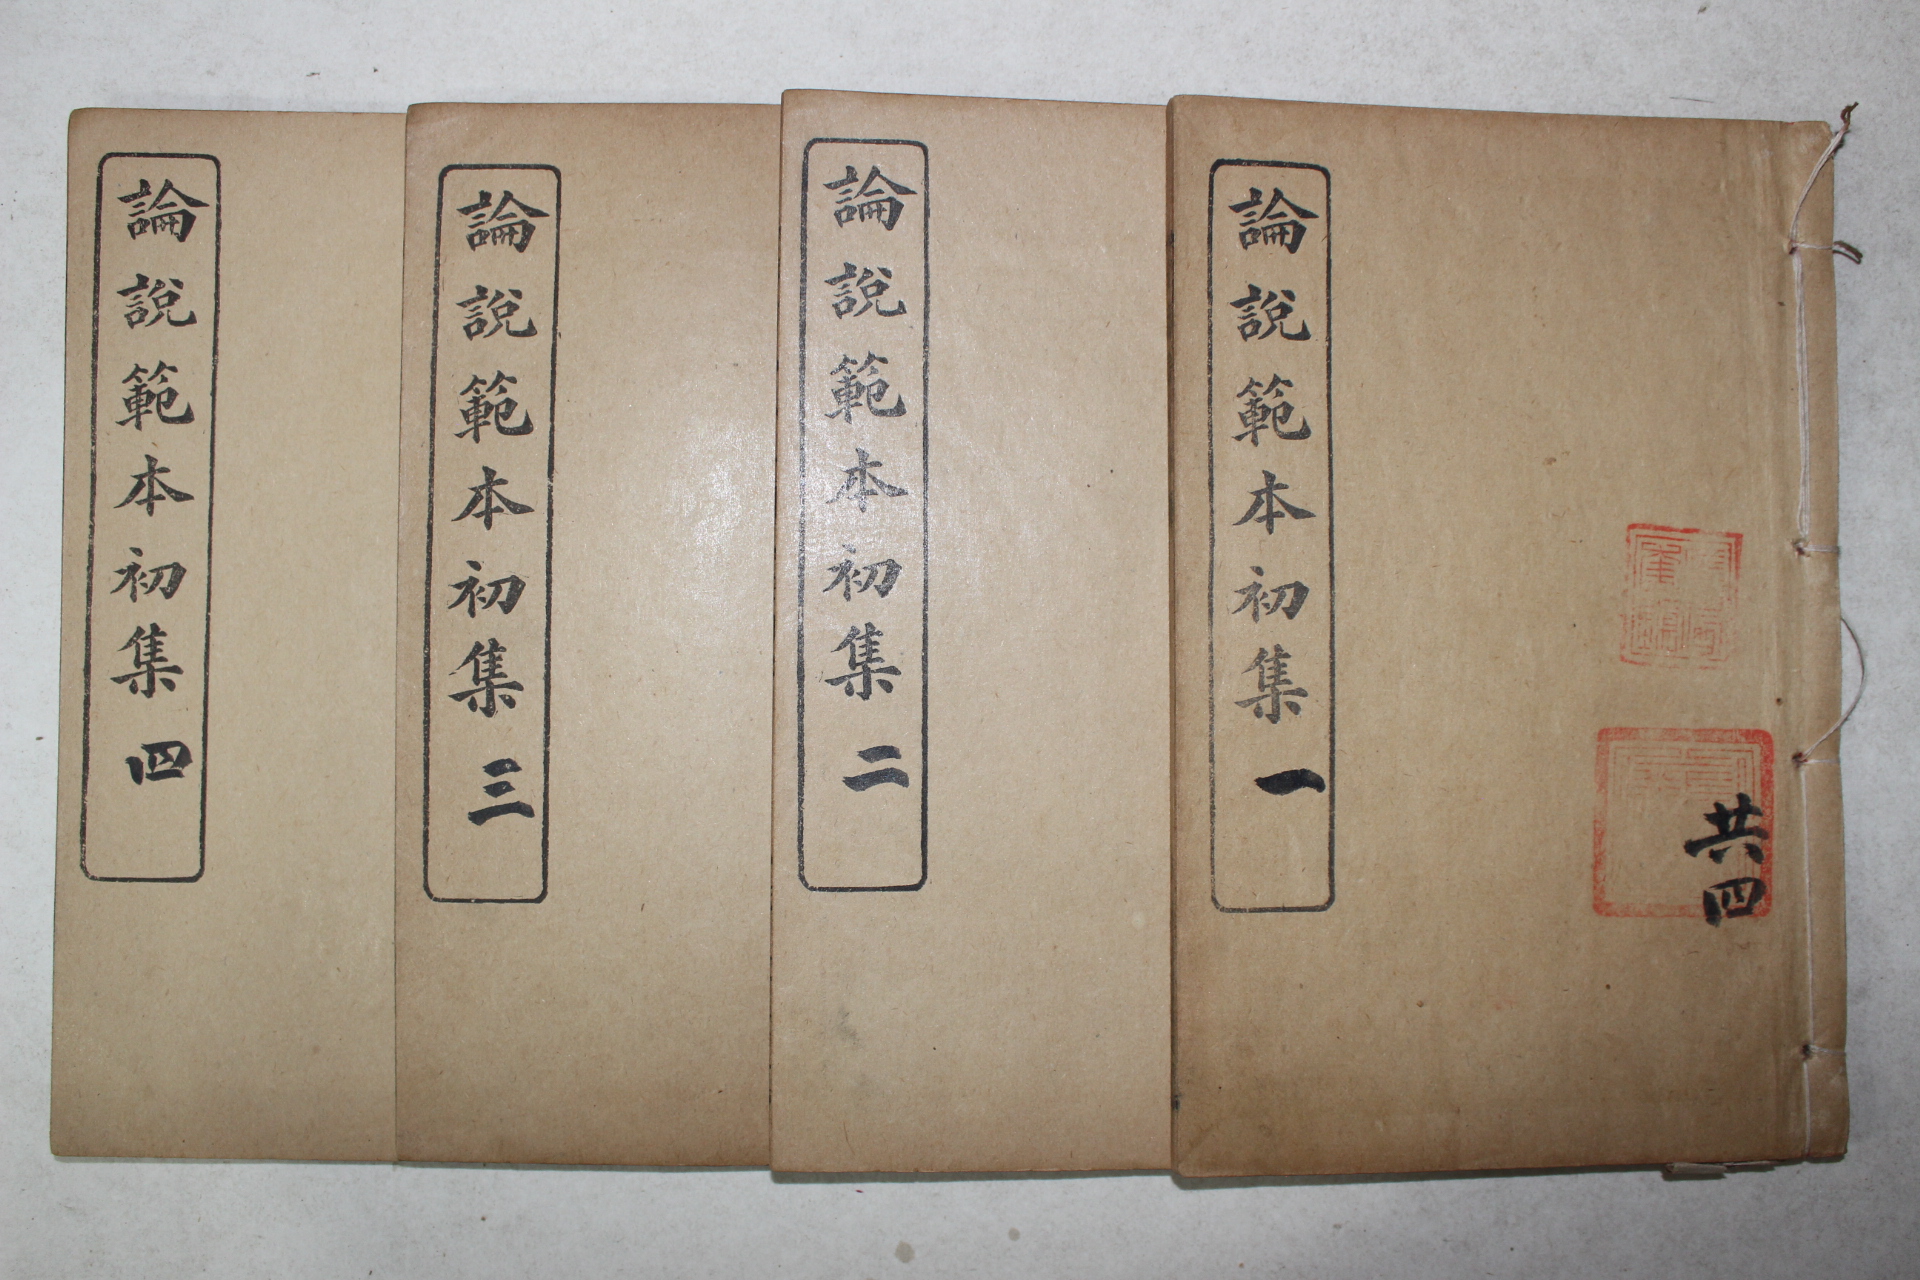 論說範本初集 一
共四
論說範本初集 二
論說範本初集 三
論說範本初集 四